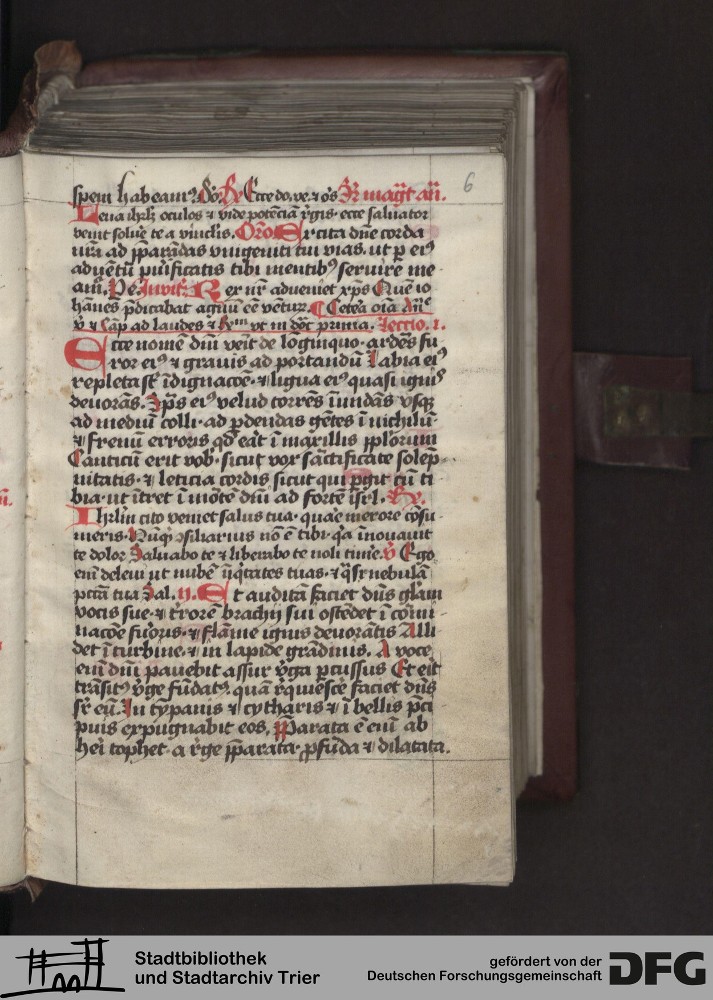 spem habeam⁹ Do. ꝶ Ecce do. ve. ⁊ os̄ Jn̄ mag̅t añ. 6
Leua ihrlm̄ oculos ⁊ vide potēciā rēgis ecce saluator
venit soluē te a vinclis. Oro Excita dn̄e corda
nr̄a ad p̄parādas vnigeniti tui vias. ut p ei⁹
aduētū purificatis tibi mentib⁹ seruire me
am̄. Invit. Rex nr̄ adueniet xp̄s Quē io
hānes p̄dicabat agnū eē vētur. Cetea oīa
⁊ cap̄ ad laudes ⁊ vt in prima. Lectio. 1.
Ecce nomē dn̄i veīt de lōginquo· ardēs fu
ror ei⁹ ⁊ grauis ad portandū Labia ei⁹
repleta st̄ īdignacōe· ⁊ ligua ei⁹ quasi ignis
deuorās. Sp̄s ei⁹ velud torrēs īundās vsq̨
ad mediū colli· ad p̄dendas gētes ī nichilū·
⁊ frenū erroris qd̄ eāt ī maxillis pp̄lorum
Canticū erit vob̄· sicut vox sāctificate solep̄
nitatis· ⁊ leticia cordis sicut qui p̄git cū ti
bia· ut ītret ī mōtē dn̄i ad fortē isrl̄. ꝶ.
Ihrlm̄ cito veniet salus tua· quāe merore cōsu
meris· Nūq̄ cōsiliarius nō ē tibi· q̄a īnouauit
te dolor Saluabo te ⁊ liberabo te noli time. v̄ Ego
em̄ deleui ut nubē īiq̄tates tuas· ⁊ q̄si nebulā
pctā tua Sal. ij. Et auditā faciet dn̄s gl̄iam
vocis sue· ⁊ t̄rorē brachij sui ostēdet ī cōmi
nacōe furoris· ⁊ flāme ignis deuorātis Alli
det ī turbine· ⁊ in lapide grādinis. A voce
em̄ dn̄i pauebit assur v̄ga p̄cussus Et eīt
trāsit⁹ v̄ge fūdat⁹ quā r̄quiescē faciet dn̄s
sr̄ eū. In tȳpanis ⁊ cytharis ⁊ ī bellis p̄ci
puis expugnabit eos, P̄parata ē em̄ ab
heī tophet· a r̄ge p̄parata· ꝓfūda ⁊ dilatata.
Stadtbibliothek
und Stadtarchiv Trier
gefördert von der
Deutschen Forschungsgemeinschaft DFG